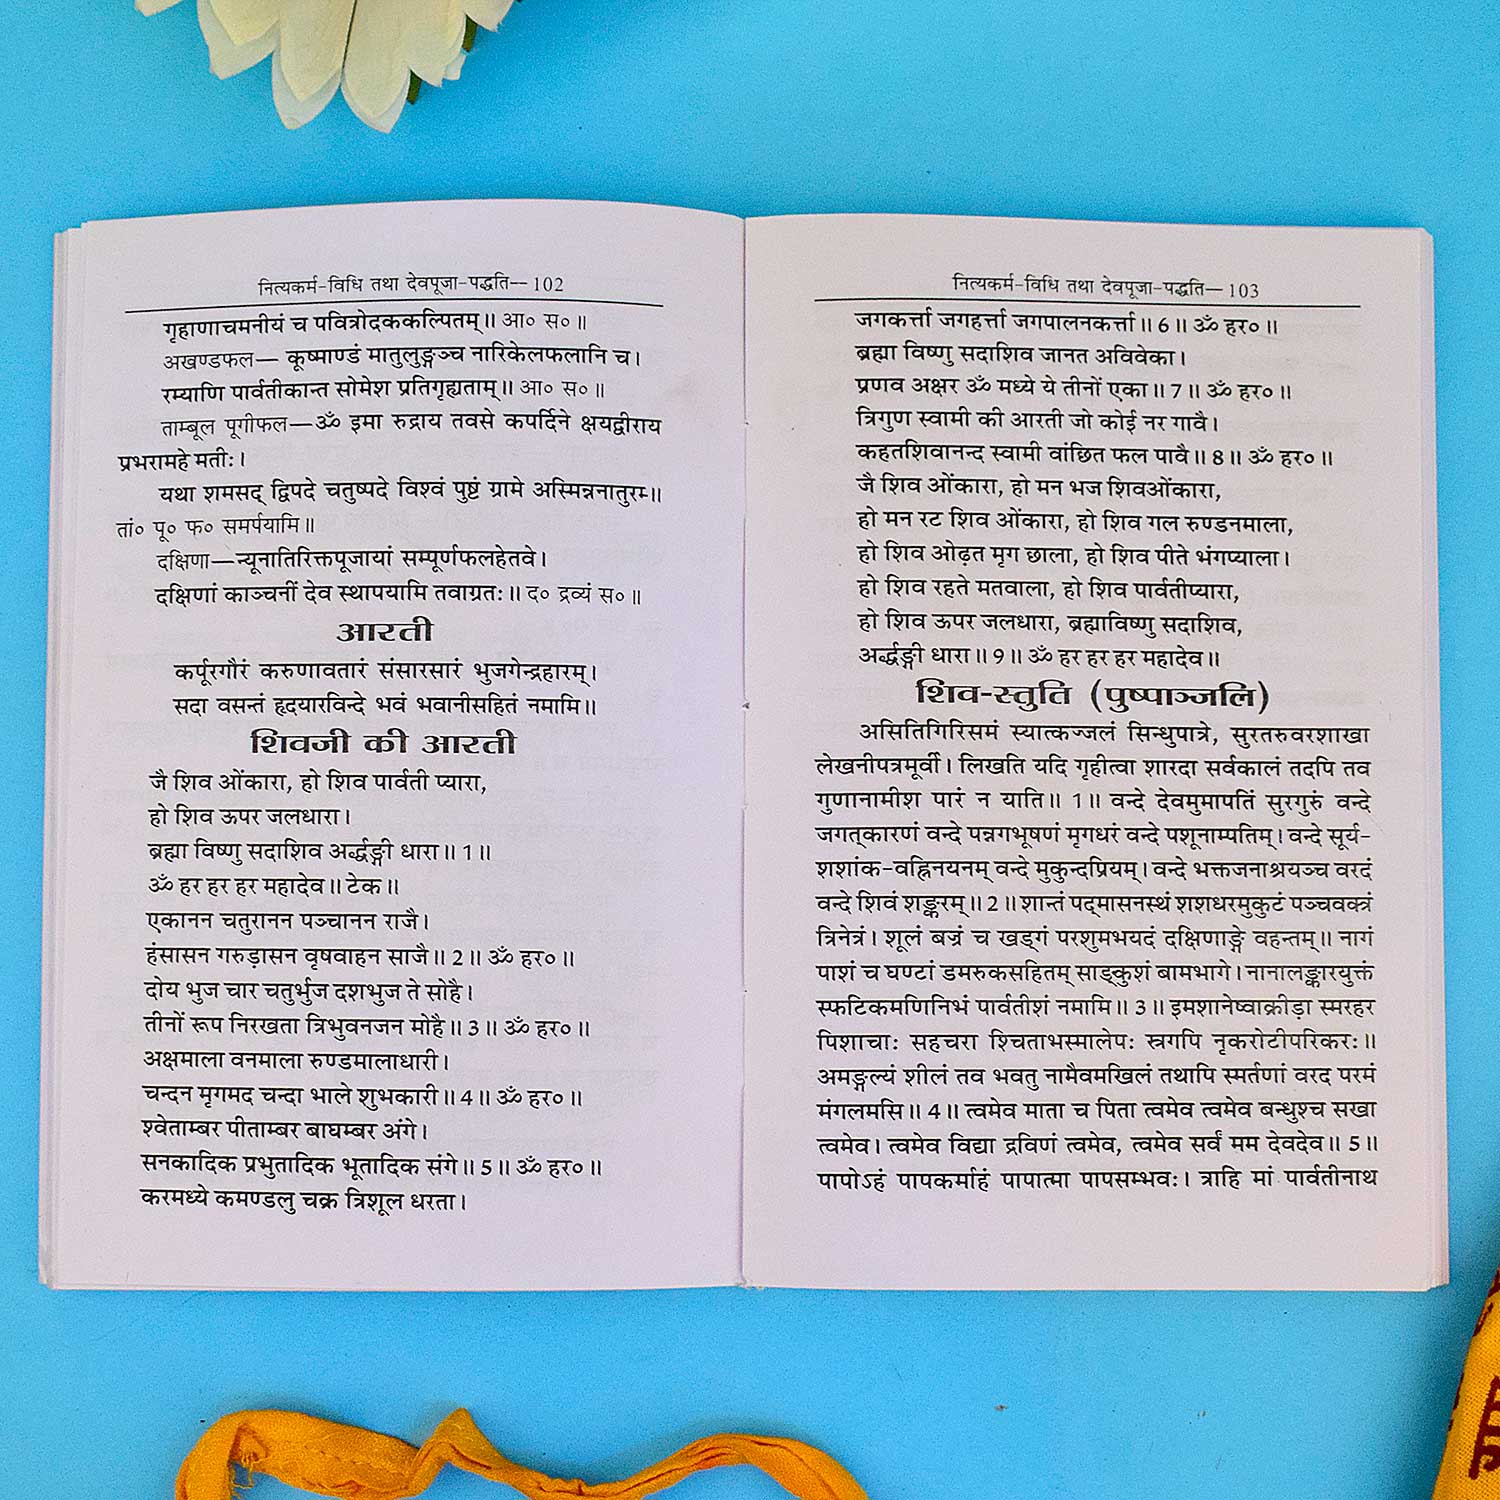 नित्यकर्म-विधि तथा देवपूजा-पद्धति—102
गृहाणाचमनीयं च पवित्रोदककल्पितम्॥ आ० स०॥
अखण्डफल— कूष्माण्डं मातुलुङ्गञ्च नारिकेलफलानि च।
रम्याणि पार्वतीकान्त सोमेश प्रतिगृह्यताम्॥ आ० स०॥
ताम्बूल पूगीफल—ॐ इमा रुद्राय तवसे कपर्दिने क्षयद्वीराय
प्रभरामहे मतीः।
यथा शमसद् द्विपदे चतुष्पदे विश्वं पुष्टं ग्रामे अस्मिन्ननातुरम्॥
तां० पू० फ० समर्पयामि॥
दक्षिणा—न्यूनातिरिक्तपूजायां सम्पूर्णफलहेतवे।
दक्षिणां काञ्चनीं देव स्थापयामि तवाग्रतः॥ द० द्रव्यं स०॥
आरती
कर्पूरगौरं करुणावतारं संसारसारं भुजगेन्द्रहारम्।
सदा वसन्तं हृदयारविन्दे भवं भवानीसहितं नमामि॥
शिवजी की आरती
जै शिव ओंकारा, हो शिव पार्वती प्यारा,
हो शिव ऊपर जलधारा।
ब्रह्मा विष्णु सदाशिव अर्द्धङ्गी धारा॥1॥
ॐ हर हर हर महादेव॥ टेक॥
एकानन चतुरानन पञ्चानन राजै।
हंसासन गरुड़ासन वृषवाहन साजै॥2॥ ॐ हर०॥
दोय भुज चार चतुर्भुज दशभुज ते सोहै।
तीनों रूप निरखता त्रिभुवनजन मोहै॥3॥ ॐ हर०॥
अक्षमाला वनमाला रुण्डमालाधारी।
चन्दन मृगमद चन्दा भाले शुभकारी॥4॥ ॐ हर०॥
श्वेताम्बर पीताम्बर बाघम्बर अंगे।
सनकादिक प्रभुतादिक भूतादिक संगे॥5॥ ॐ हर०॥
करमध्ये कमण्डलु चक्र त्रिशूल धरता।
नित्यकर्म-विधि तथा देवपूजा-पद्धति—103
जगकर्त्ता जगहर्त्ता जगपालनकर्त्ता॥6॥ ॐ हर०॥
ब्रह्मा विष्णु सदाशिव जानत अविवेका।
प्रणव अक्षर ॐ मध्ये ये तीनों एका॥7॥ ॐ हर०॥
त्रिगुण स्वामी की आरती जो कोई नर गावै।
कहतशिवानन्द स्वामी वांछित फल पावै॥8॥ ॐ हर०॥
जै शिव ओंकारा, हो मन भज शिवओंकारा,
हो मन रट शिव ओंकारा, हो शिव गल रुण्डनमाला,
हो शिव ओढ़त मृग छाला, हो शिव पीते भंगप्याला।
हो शिव रहते मतवाला, हो शिव पार्वतीप्यारा,
हो शिव ऊपर जलधारा, ब्रह्माविष्णु सदाशिव,
अर्द्धङ्गी धारा॥9॥ ॐ हर हर हर महादेव॥
शिव-स्तुति (पुष्पाञ्जलि)
असितिगिरिसमं स्यात्कज्जलं सिन्धुपात्रे, सुरतरुवरशाखा
लेखनीपत्रमूर्वी। लिखति यदि गृहीत्वा शारदा सर्वकालं तदपि तव
गुणानामीश पारं न याति॥ 1॥ वन्दे देवमुमापतिं सुरगुरुं वन्दे
जगत्कारणं वन्दे पन्नगभूषणं मृगधरं वन्दे पशूनाम्पतिम्। वन्दे सूर्य-
शशांक-वह्निनयनम् वन्दे मुकुन्दप्रियम्। वन्दे भक्तजनाश्रयञ्च वरदं
वन्दे शिवं शङ्करम्॥2॥ शान्तं पद्मासनस्थं शशधरमुकुटं पञ्चवक्त्रं
त्रिनेत्रं। शूलं बज्रं च खड्गं परशुमभयदं दक्षिणाङ्गे वहन्तम्॥ नागं
पाशं च घण्टां डमरुकसहितम् साङ्कुशं बामभागे। नानालङ्कारयुक्तं
स्फटिकमणिनिभं पार्वतीशं नमामि॥3॥ इमशानेष्वाक्रीड़ा स्मरहर
पिशाचाः सहचरा श्चिताभस्मालेपः स्त्रगपि नृकरोटीपरिकरः॥
अमङ्गल्यं शीलं तव भवतु नामैवमखिलं तथापि स्मर्तणां वरद परमं
मंगलमसि॥4॥ त्वमेव माता च पिता त्वमेव त्वमेव बन्धुश्च सखा
त्वमेव। त्वमेव विद्या द्रविणं त्वमेव, त्वमेव सर्वं मम देवदेव॥5॥
पापोऽहं पापकर्माहं पापात्मा पापसम्भवः। त्राहि मां पार्वतीनाथ